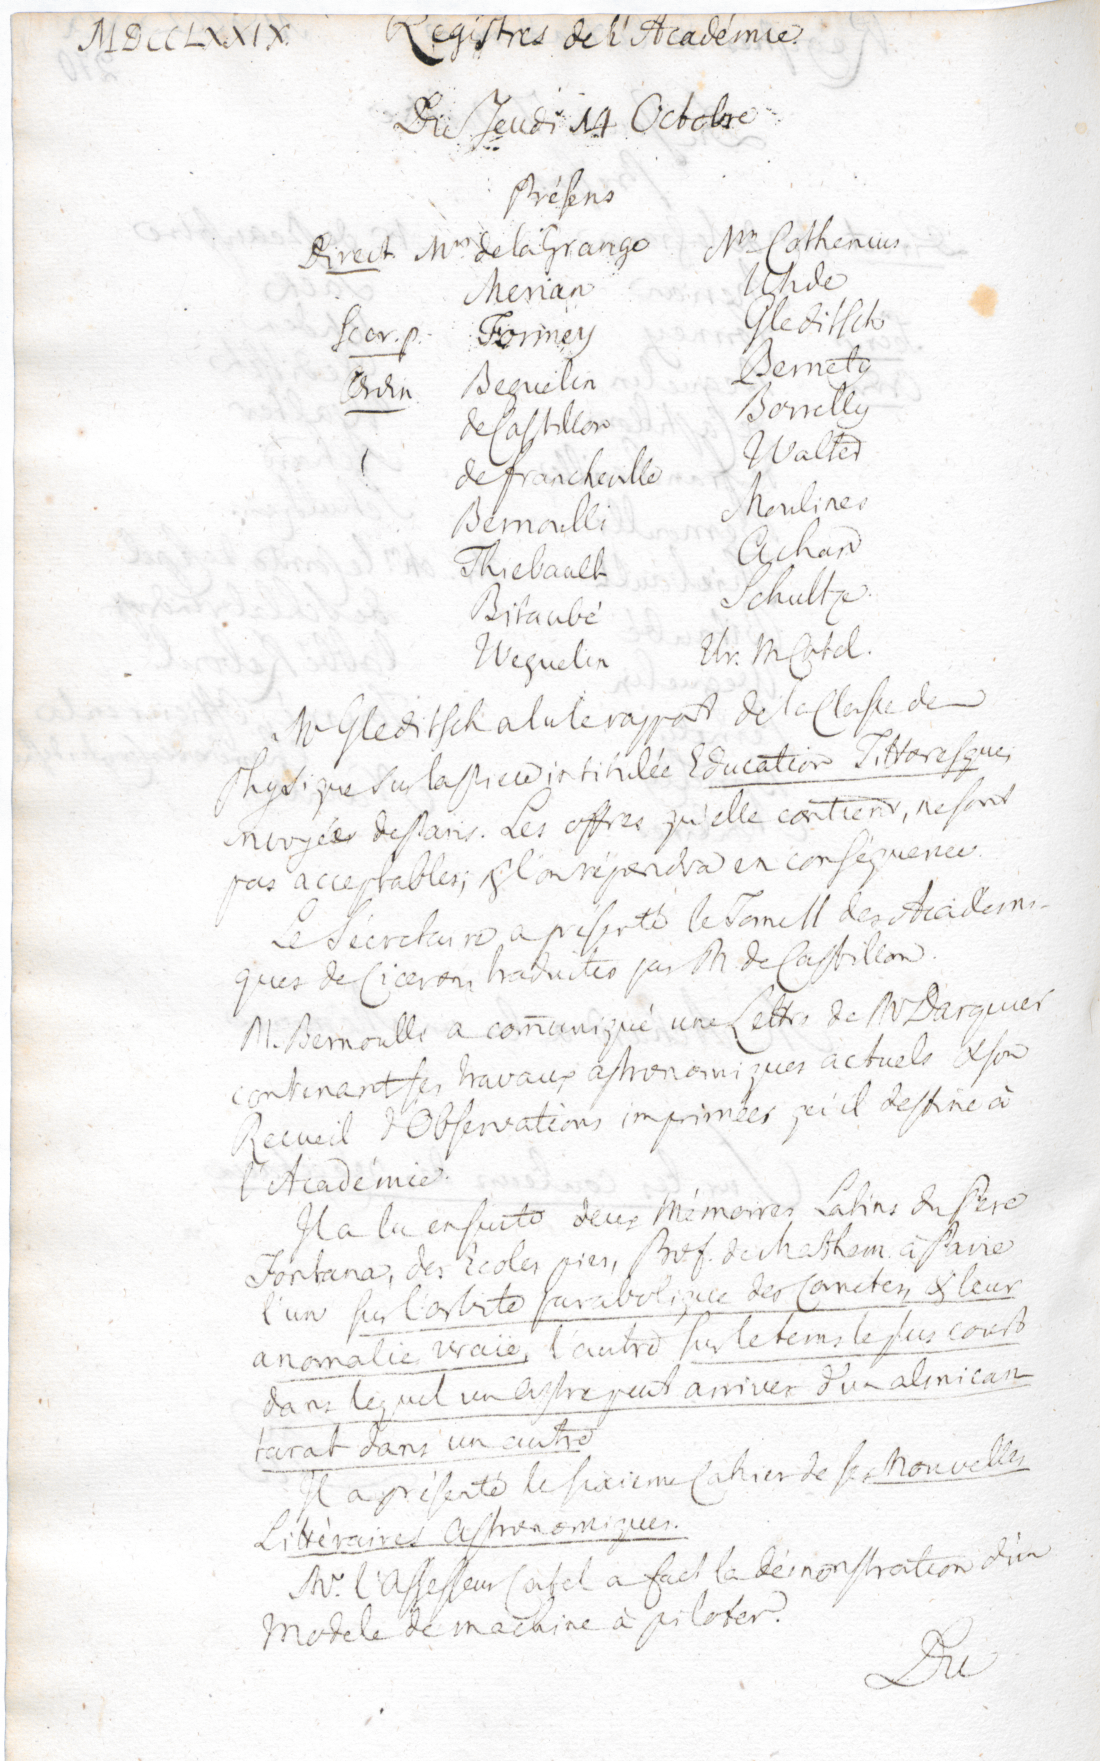 MDCCLXXIX. Registres de l'Académie.
Du Jeudi 14 Octobre
Présens
Direct. Mrs de la Grange Mrs Cothenius
Merian Uhde
Secr. p. Formey Gleditsch
Ordin Beguelin Pernety
de Castillon Borrelly
de Francheville Walter
Bernoulli Moulines
Thiebault Achard
Bitaubé Schultze.
Weguelin Ur. M Catel.
Mr Gleditsch a lu le rapport de la Classe de
Physique sur la piece intitulée Education Pittoresque,
envoyée de Paris. Les offres qu'elle contient, ne sont
pas acceptables; & l'on répondra en conséquence.
Le Sécretaire a présenté le Tome II des Academi-
ques de Ciceron, traduites par M. de Castillon.
M. Bernoulli a com̄uniqué une Lettre de Mr Darquier
contenant ses travaux astronomiques actuels & son
Recueil d'Observations imprimées qu'il destine à
l'Académie.
Il a lu ensuite deux Mémoires Latins du Pere
Fontana, des Ecoles pies, Prof. de Mathem. à Pavie
l'un sur l'orbite parabolique des Cometes, & leur
anomalie vraïe, l'autre sur le tems le plus court
dans lequel un Astre peut arriver d'un almican-
tarat dans un autre
Il a présenté le sixieme Cahier de ses Nouvelles
Littéraires Astronomiques.
Mr. l'Assesseur Catel a fait la démonstration d'un
Modele de machine à piloter.
Du